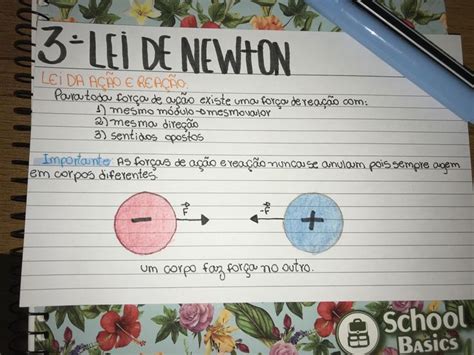 3ª LEI DE NEWTON
LEI DA AÇÃO E REAÇÃO
Para toda força de ação existe uma força de reação com:
1) mesmo módulo → mesmo valor
2) mesma direção
3) sentidos opostos
Importante: As forças de ação e reação nunca se anulam pois sempre agem
em corpos diferentes.
F -F
- +
um corpo faz força no outro.
School
BASICS